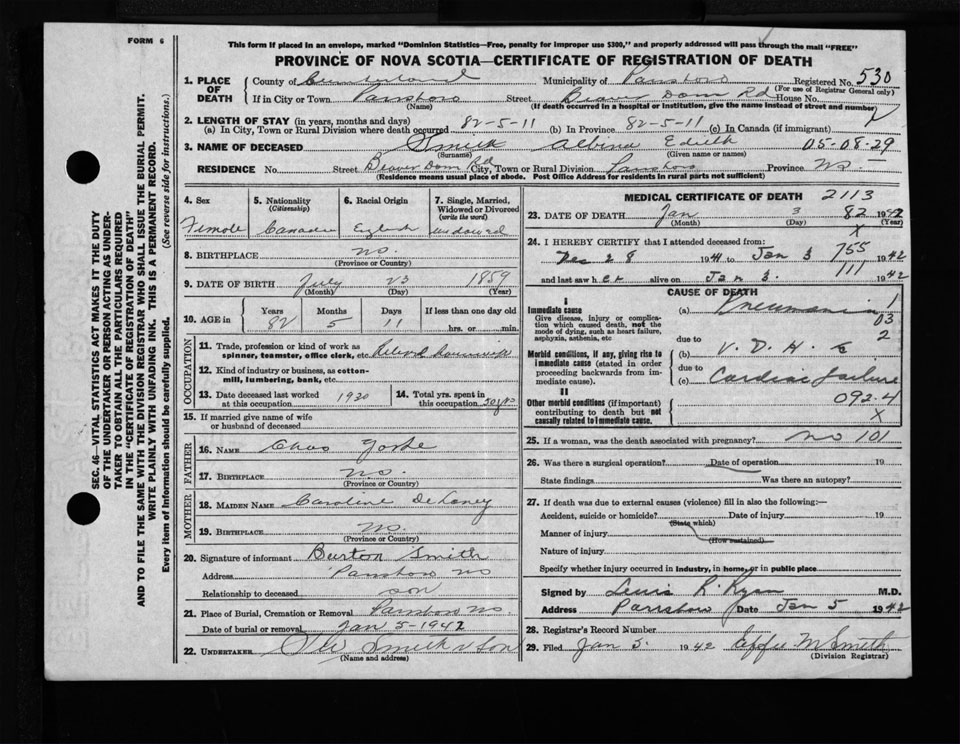 FORM 6
This form if placed in an envelope, marked "Dominion Statistics—Free, penalty for improper use $300," and properly addressed will pass through the mail "FREE"
PROVINCE OF NOVA SCOTIA—CERTIFICATE OF REGISTRATION OF DEATH
SEC. 46—VITAL STATISTICS ACT MAKES IT THE DUTY
OF THE UNDERTAKER OR PERSON ACTING AS UNDER-
TAKER TO OBTAIN ALL THE PARTICULARS REQUIRED
IN THE "CERTIFICATE OF REGISTRATION OF DEATH"
AND TO FILE THE SAME WITH THE DIVISION REGISTRAR WHO SHALL ISSUE THE BURIAL PERMIT.
WRITE PLAINLY WITH UNFADING INK. THIS IS A PERMANENT RECORD.
Every item of Information should be carefully supplied. (See reverse side for instructions.)
1. PLACE OF DEATH County of Cumberland Municipality of Parrsboro Registered No. 530
(For use of Registrar General only)
If in City or Town Parrsboro Street Beaver Dam Rd House No.
(Name) (If death occurred in a hospital or institution, give the name instead of street and number)
2. LENGTH OF STAY (in years, months and days)
(a) In City, Town or Rural Division where death occurred 82-5-11 (b) In Province 82-5-11 (c) In Canada (if immigrant)
3. NAME OF DECEASED Smith Albina Edith 05-08-29
(Surname) (Given name or names)
RESIDENCE No. Street Beaver Dam Rd City, Town or Rural Division Parrsboro Province NS
(Residence means usual place of abode. Post Office Address for residents in rural parts not sufficient)
4. Sex Female
5. Nationality (Citizenship) Canadian
6. Racial Origin English
7. Single, Married, Widowed or Divorced (write the word) widowed
8. BIRTHPLACE NS.
(Province or Country)
9. DATE OF BIRTH July 23 1859
(Month) (Day) (Year)
10. AGE in Years 82 Months 5 Days 11 If less than one day old hrs. or min.
OCCUPATION
11. Trade, profession or kind of work as spinner, teamster, office clerk, etc. Retired Housewife
12. Kind of industry or business, as cotton-mill, lumbering, bank, etc.
13. Date deceased last worked at this occupation 1930
14. Total yrs. spent in this occupation 50 yrs
15. If married give name of wife or husband of deceased
FATHER
16. NAME Chas Yorke
17. BIRTHPLACE NS.
(Province or Country)
MOTHER
18. MAIDEN NAME Caroline DeLaney
19. BIRTHPLACE NS.
(Province or Country)
20. Signature of informant Burton Smith
Address Parrsboro NS
Relationship to deceased son
21. Place of Burial, Cremation or Removal Parrsboro NS.
Date of burial or removal Jan 5-1942
22. UNDERTAKER Smith & Son
(Name and address)
MEDICAL CERTIFICATE OF DEATH 2113
23. DATE OF DEATH Jan 3 82 1942
(Month) (Day) (Year)
X
24. I HEREBY CERTIFY that I attended deceased from:
Dec 28 1941 to Jan 3 755 1942
and last saw her alive on Jan 3. 111 1942
CAUSE OF DEATH
I
Immediate cause (a) Pneumonia 1
Give disease, injury or complication which caused death, not the mode of dying, such as heart failure, asphyxia, asthenia, etc 03
due to 2
Morbid conditions, if any, giving rise to immediate cause (stated in order proceeding backwards from immediate cause). (b) V. D. H. &
due to
(c) Cardiac failure
II 092.4
Other morbid conditions (if important) contributing to death but not causally related to immediate cause. X
25. If a woman, was the death associated with pregnancy? no 101
26. Was there a surgical operation? Date of operation 19
State findings Was there an autopsy?
27. If death was due to external causes (violence) fill in also the following:—
Accident, suicide or homicide? Date of injury 19
(State which)
Manner of injury
(How sustained)
Nature of injury
Specify whether injury occurred in industry, in home, or in public place
Signed by Lewis R. Ryan M.D.
Address Parrsboro Date Jan 5 1942
28. Registrar's Record Number
29. Filed Jan 5. 1942 Effie M Smith
(Division Registrar)